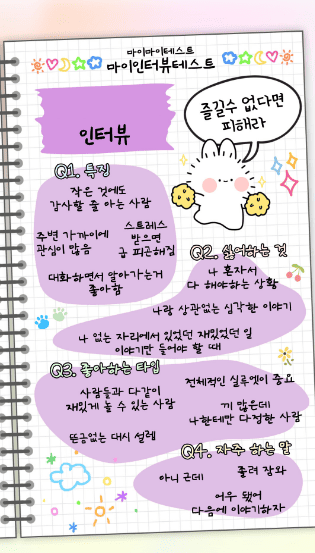 마이마이테스트
마이인터뷰테스트
인터뷰
즐길수 없다면
피해라
Q1. 특징
작은 것에도
감사할 줄 아는 사람
주변 가까이에
관심이 많음
스트레스
받으면
급 피곤해짐
대화하면서 알아가는거
좋아함
Q2. 싫어하는 것
나 혼자서
다 해야하는 상황
나랑 상관없는 심각한 이야기
나 없는 자리에서 있었던 재밌었던 일
이야기만 들어야 할 때
Q3. 좋아하는 타입
사람들과 다같이
재밌게 놀 수 있는 사람
전체적인 실루엣이 중요
끼 많은데
나한테만 다정한 사람
뜬금없는 대시 설레
Q4. 자주 하는 말
아니 근데
졸려 잠와
어우 됐어
다음에 이야기하자